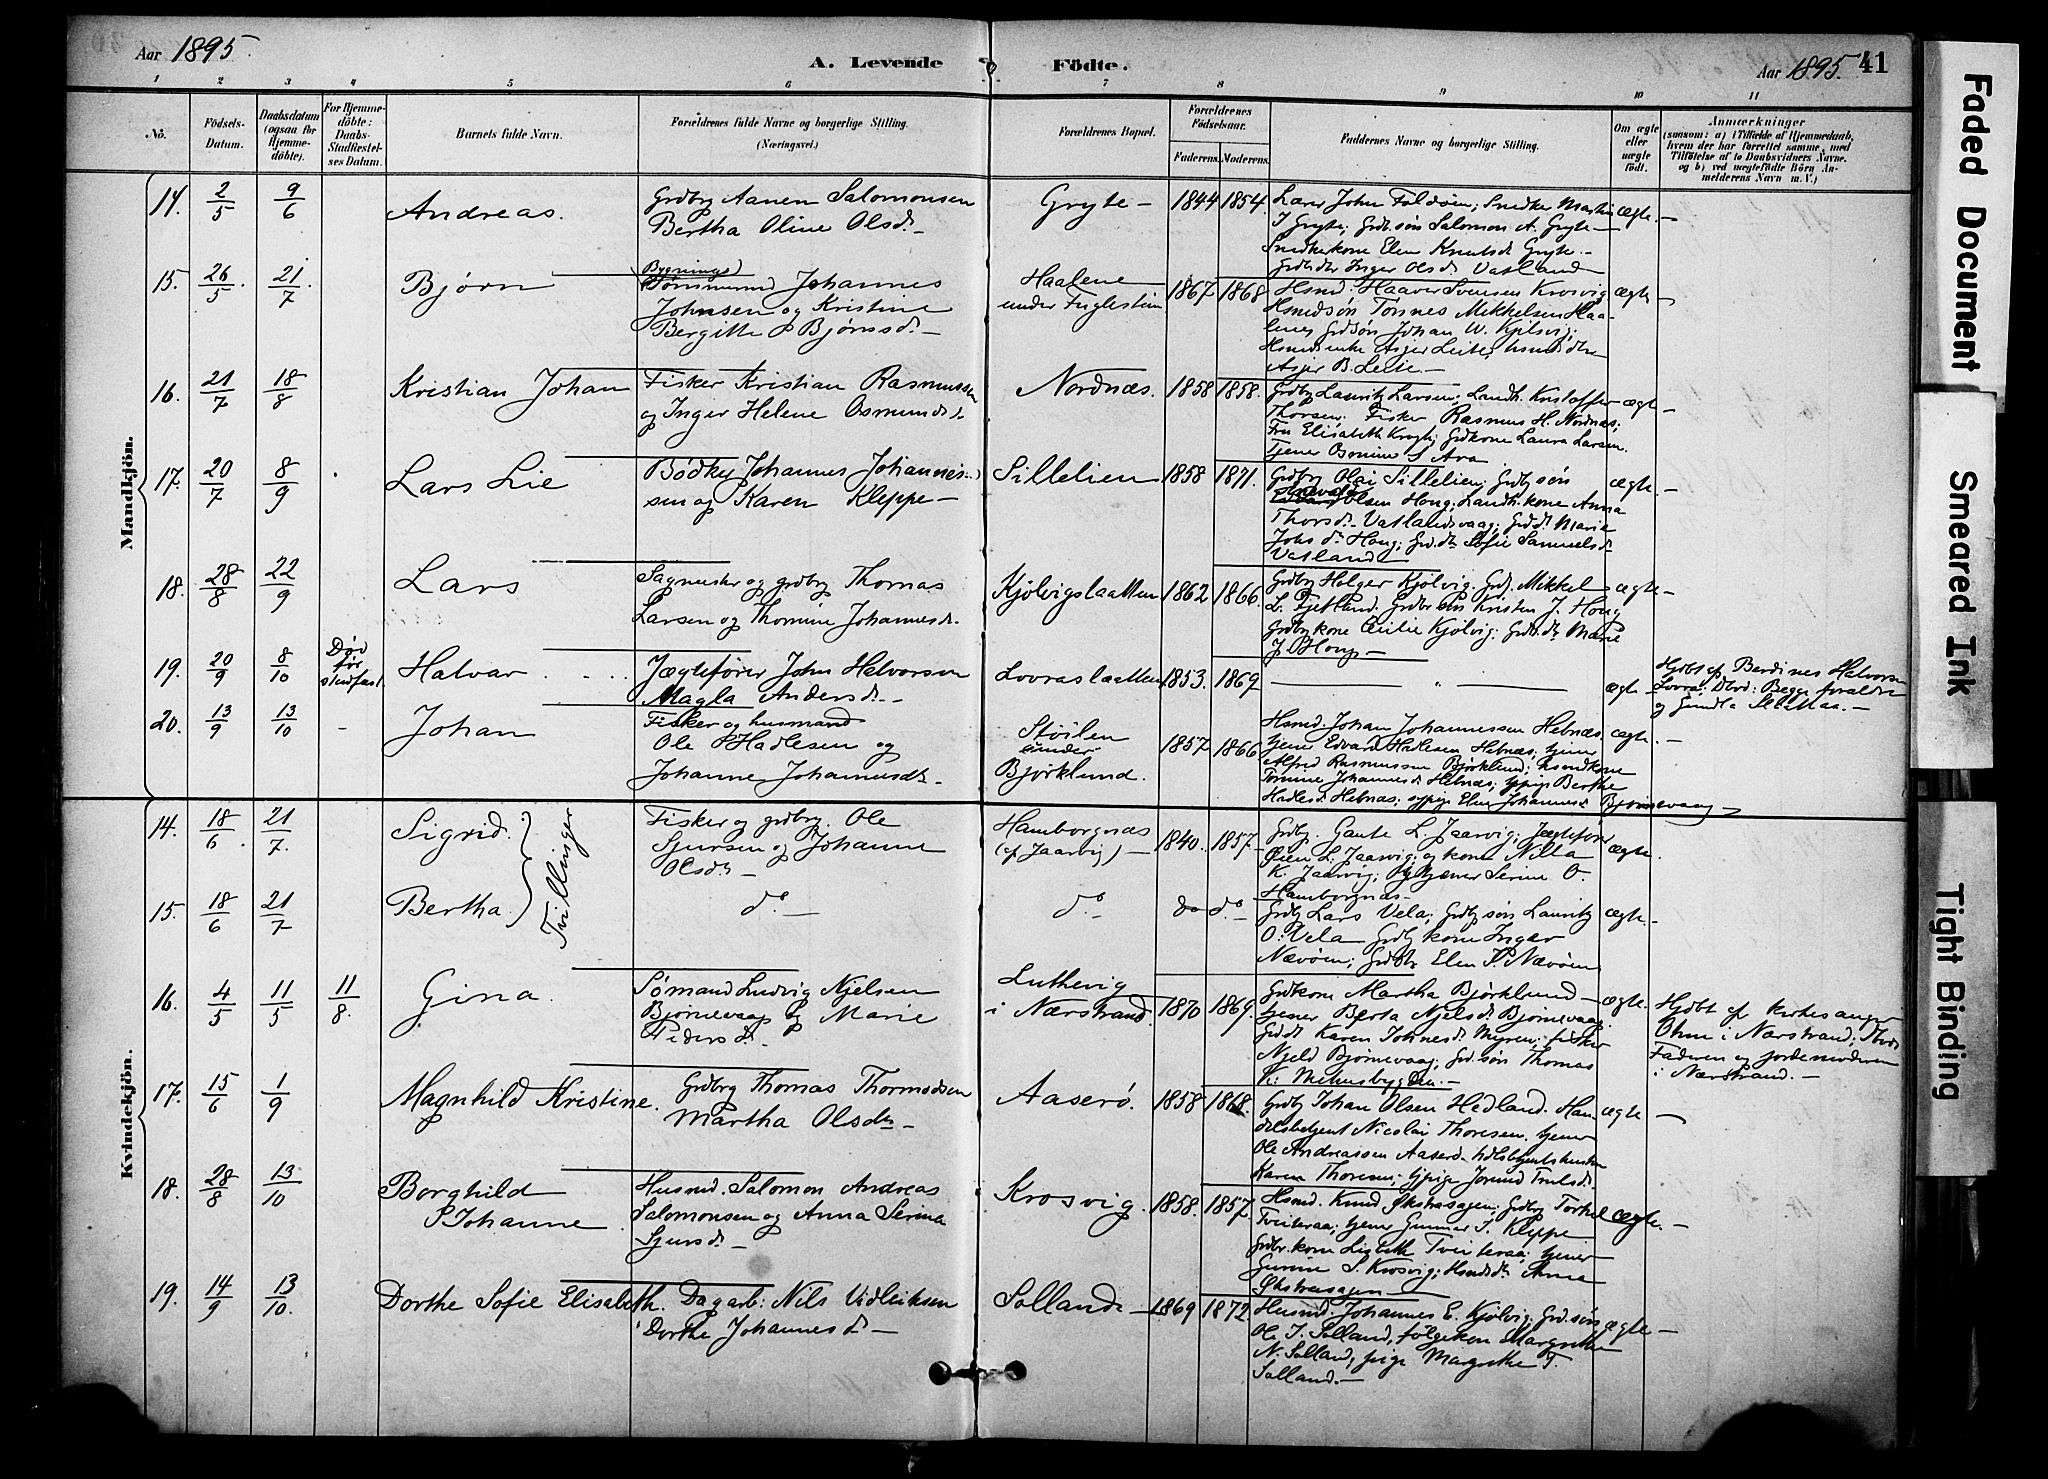 Aar 1895.
A. Levende Födte.
Aar 1895. 41
1 2 3 4 5 6 7 8 9 10 11
No.
Födsels-Datum.
Daabsdatum (ogsaa for Hjemme-döbte).
For Hjemme-döbte: Daabs-Stadfæstel-ses Datum.
Barnets fulde Navn.
Forældrenes fulde Navne og borgerlige Stilling.
(Næringsvei.)
Forældrenes Bopæl.
Forældrenes Födselsaar.
Faderens. Moderens.
Faddernes Navne og borgerlige Stilling.
Om ægte eller uægte födt.
Anmærkninger
(saasom: a) i Tilfælde af Hjemmedaab, hvem der har forrettet samme, med Tilföielse af to Daabsvidners Navne. og b) ved uægtefödte Börn An-melderens Navn m. V.)
Mandkjön.
14. 2/5 9/6 Andreas. Grdbr Aanen Salomonsen
Bertha Oline Olsdr. –
Gryte – 1844 1854.
Lærer John Foldøen; Snedker Martin
J Gryte; Grdb.søn Salomon A. Gryte –
Snedkerkone Elen Knutsdr Gryte. –
Inger Olsdr Vatland
ægte. –
15. 26/5. 21/7. Bjørn Bygnings
Johannes
Johnsen og Kristine
Bergitte Bjørnsdr. –
Haalene
under Fuglestein
1867 1868
Hsmd. Haaver Svensen Krosvig
Hsmdsøn Tønnes Mikkelsen Haa-
lene; Grdsøn Johan W. Kjølvig;
Hsmdenke Asjer Leite; hsmdsdtr
Asjer B. Leite. –
ægte –
16. 21/7 18/8 Kristian Johan Fisker Kristian Rasmussen
og Inger Helene Osmundsdr.
Nordnæs. 1858 1858.
Grdbr Lauritz Larsen; Landh. Kristoffer
Thorsen. Fisker Rasmus H. Nordnæs;
Fru Elisabeth Krogh; Grdkone Laura Larsen.
Tjener
ægte –
17. 20/7 8/9 Lars Lie Bødker Johannes Johannes-
sen og Karen Kleppe –
Sillelien 1858 1871.
Grdbr Olai Sillelien; Grdbsøn
Olsen Houg; Landh.kone Anna
Thorsdr. Vatlandsvaag; Grddtr Marie
Johs dr Houg; Grd.dtr Sofie Samuelsdr
Vatland
ægte. –
18. 28/8 22/9 Lars Sagmester og grdbr Thomas
Larsen og Thomine Johannesdr.
Kjølvigslaatten 1862 1866.
Grdbr Holger Kjølvig. Grd. Mikkel
L. Fjetland. Grdbr søn Kristen J. Houg
Grdbrkone Cecilie Kjølvig; Grdb.dtr Marie
J. Houg –
ægte –
19. 20/9 8/10 Død før stadfæst Halvar Jægtefører John Halvorsen
Magla Andersdr. –
Lovraslaatten 1853. 1869
ægte
Hjdbt af Berdines Halvorsen
Lovra; Dbvd: Begge forældre
og Gundla Slaattaa. –
20. 13/9 13/10 – Johan Fisker og husmand
Ole Hadlesen og
Johanne Johannesdtr.
Støilen
under
Bjørklund.
1857 1866
Hsmd. Johan Johannessen Hebnæs.
tjener Edvard Hadlesen Hebnæs; tjener
Alfred Rasmussen Bjørklund; husmdkone
Tomine Johannesdr Hebnæs; tjpige Berthe
Hadlesdr Hebnæs; sypige Elen Johannesdr Bjørnevaag –
ægte. –
Kvindekjön.
14. 18/6. 21/7. Sigrid. Tvillinger Fisker og grdbr. Ole
Sjursen og Johanne
Olsdr –
Hamborgnæs
(af Jaarvig) –
1840. 1857 –
Grdbr. Gaute L. Jaarvig; Jægtefører
L. Jaarvig; og kone Nilla
K. Jaarvig; tjener Serine O.
Hamborgnæs –
ægte.
15. 18/6 21/7 Bertha. do – do – do do –
Grdbr Lars Vela; Grdbsøn Lauritz
O. Vela Grdbr kone Inger
Nævøen; Grdbdtr Elen P. Nævøen
ægte. –
16. 4/5 11/5 11/8 Gina. Sømand Ludvig Njelsen
Bjørnevaag og Marie
Pedersdr.
Luthevig
i Nærstrand. 1870 1869.
Grdkone Martha Bjørklund –
tjener Berta Njelsdr Bjørnevaag
Grd.dt Karen Johnesdr Myren; fisker
Njeld Bjørnevaag; Grd.søn Thomas
K. Mehusbygden. –
ægte.
Hjdbt af kirkesanger
Ohm i Nærstrand; Dbvd
Faderen og jordemoderen
i Nærstrand. –
17. 15/6 1/9 Magnhild Kristine. Grdbr Thomas Thormodsen
Martha Olsdtr –
Aaserø. 1858 1868.
Grdbr Johan Olsen Hedland. Han-
delsbetjent Nicolai Thoresen, tjener
Ole Andreassen Aaserø.
Karen Thoresen; tjpige Jorund
ægte –
18. 28/8 13/10 Borghild
Johanne
Husmd. Salomon Andreas
Salomonsen og Anna Serina
Sjursdr –
Krosvig. 1858. 1857.
Hsmd. Knud Økstrasajen; Grdbr Torkel
Tveiteraa; tjener Gunnar T. Kleppe
Grdbr.kone Lisbeth Tveiteraa; tjener
Gurine S. Krosvig; Hsmdsdtr Anna
Økstrasajen –
ægte. –
19. 14/9 13/10. Dorthe Sofie Elisabeth. Dagarb: Nils Vidleiksen
Dorthe Johannesdr –
Solland – 1869 1872.
Husmd. Johannes E. Kjølvig; Grd.søn
Ole J. Solland, følgekon Margrethe
N. Solland, pige Margrethe T.
Solland. –
ægte –
Faded Document
Smeared Ink
Tight Binding